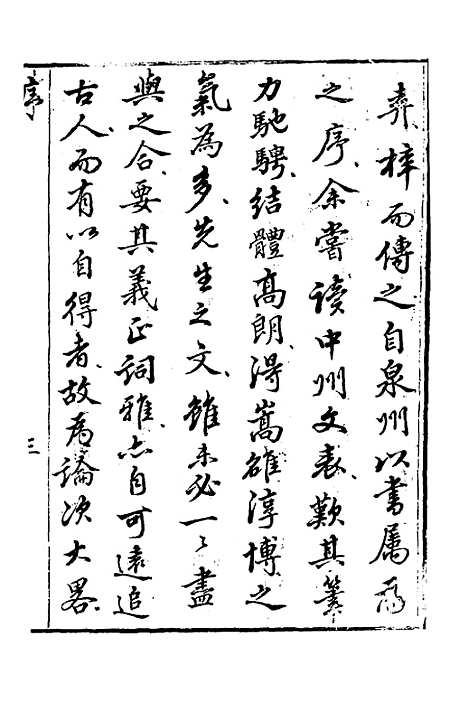 梓而傳之自泉州以書属為
之序余嘗讀中州文表歎其筆
力馳騁結體高朗得嵩雒淳博之
氣為多先生之文雖未必一〻盡
與之合要其義正詞雅亦自可遠追
古人而有以自得者故為論次大畧
序
三